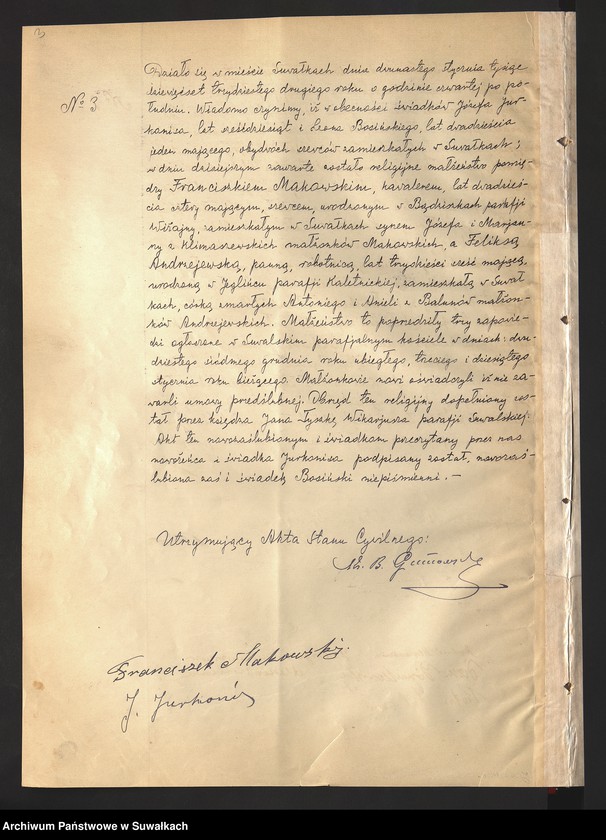 3
Działo się w mieście Suwałkach dnia dwunastego stycznia tysiąc
dziewięćset trzydziestego drugiego roku o godzinie czwartej po po-
№ 3
łudniu. Wiadomo czynimy, iż w obecności świadków Józefa Jur-
kanisa, lat sześćdziesiąt i Leona Bosińskiego, lat dwadzieścia
jeden mającego, obydwóch szewców zamieszkałych w Suwałkach;
w dniu dzisiejszym zawarte zostało religijne małżeństwo pomię-
dzy Franciszkiem Makowskim, kawalerem, lat dwadzieś-
cia cztery mającym, szewcem, urodzonym w Bądziszkach parafji
Wiżajny, zamieszkałym w Suwałkach synem Józefa i Marjan-
ny z Klimaszewskich małżonków Makowskich, a Feliksą
Andrzejewską, panną, robotnicą, lat trzydzieści sześć mającą,
urodzoną w Jeglińcu parafji Kaletnickiej, zamieszkałą w Suwał-
kach, córką zmarłych Antoniego i Anieli z Balunów małżon-
ków Andrzejewskich. Małżeństwo to poprzedziły trzy zapowie-
dzi ogłoszone w Suwalskim parafjalnym kościele w dniach: dwu-
dziestego siódmego grudnia roku ubiegłego, trzeciego i dziesiątego
stycznia roku bieżącego. Małżonkowie nowi oświadczyli iż nie za-
warli umowy przedślubnej. Obrzęd ten religijny dopełniony zos-
tał przez księdza Jana Łyszkę, Wikarjusza parafji Suwalskiej.
Akt ten nowozaślubionym i świadkom przeczytany przez nas
nowożeńca i świadka Jurkanisa podpisany został, nowozaś-
lubiona zaś i świadek Bosiński niepiśmienni. —
Utrzymujący Akta Stanu Cywilnego:
B.
Franciszek Makowskij.
J. Jurkonis
Archiwum Państwowe w Suwałkach